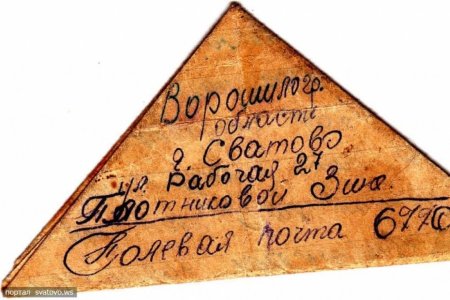 Ворошилогр.
области
г. Сватово
ул. Рабочая 27
Плотниковой Зине
Полевая почта 6770
портал svatovo.ws